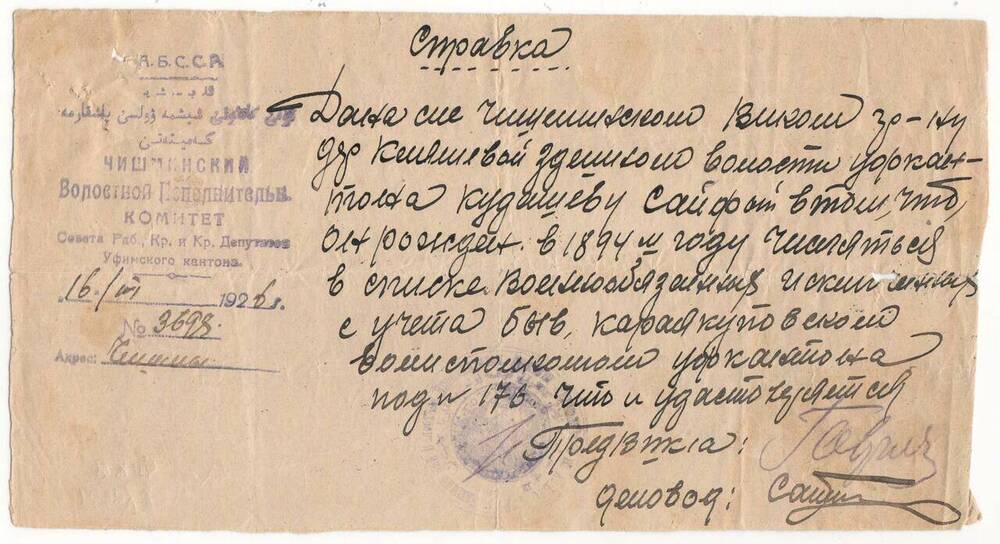 А.Б.С.С.Р.
ЧИШМИНСКИЙ
Волостной Исполнительн.
КОМИТЕТ
Совета Раб., Кр. и Кр. Депутатов
Уфимского кантона.
16/III 1926 г.
№ 3698
Адрес: Чишмы
Справка
Дана сие Чишминского Виком гр-ну
дер Княшевой здешной волости уфкан-
тона Кудашеву Сайфый в том, что,
он рожден. в 1894 м году числяться
в списке военнобязанныя
с учета быв, каракуповском
волисполкомом уфкантона
под n 176 что и удастоверяется
Предвика:
деловод: